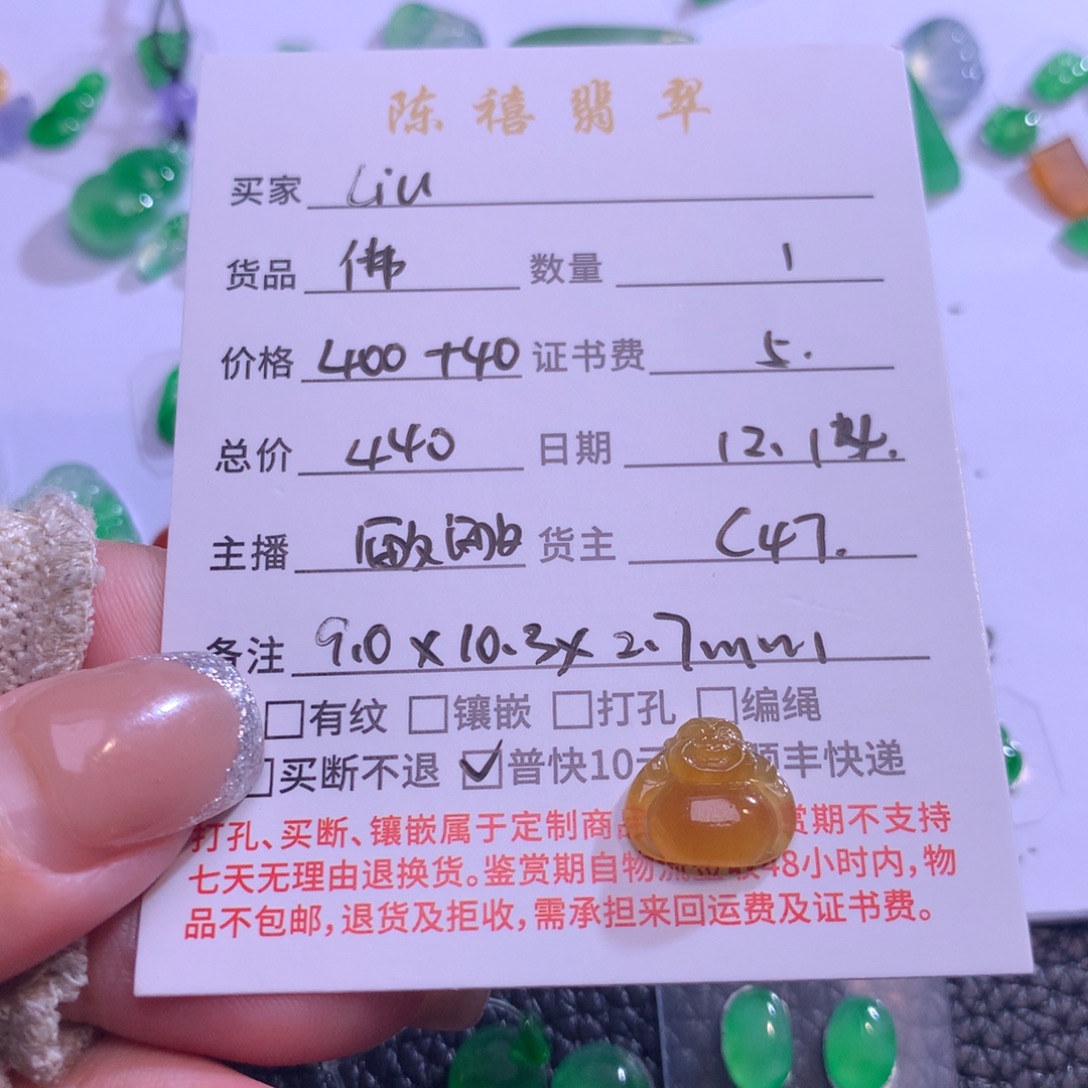 陈禧翡翠
买家 Liu
货品 佛 数量 1
价格 400+40 证书费 5.
总价 440 日期 12.1
主播 货主 C47.
备注 9.0×10.3×2.7mm
□有纹 □镶嵌 □打孔 □编绳
□买断不退 ☑普快10 顺丰快递
打孔、买断、镶嵌属于定制商品 赏期不支持
七天无理由退换货。鉴赏期自物流签收48小时内,物
品不包邮,退货及拒收,需承担来回运费及证书费。